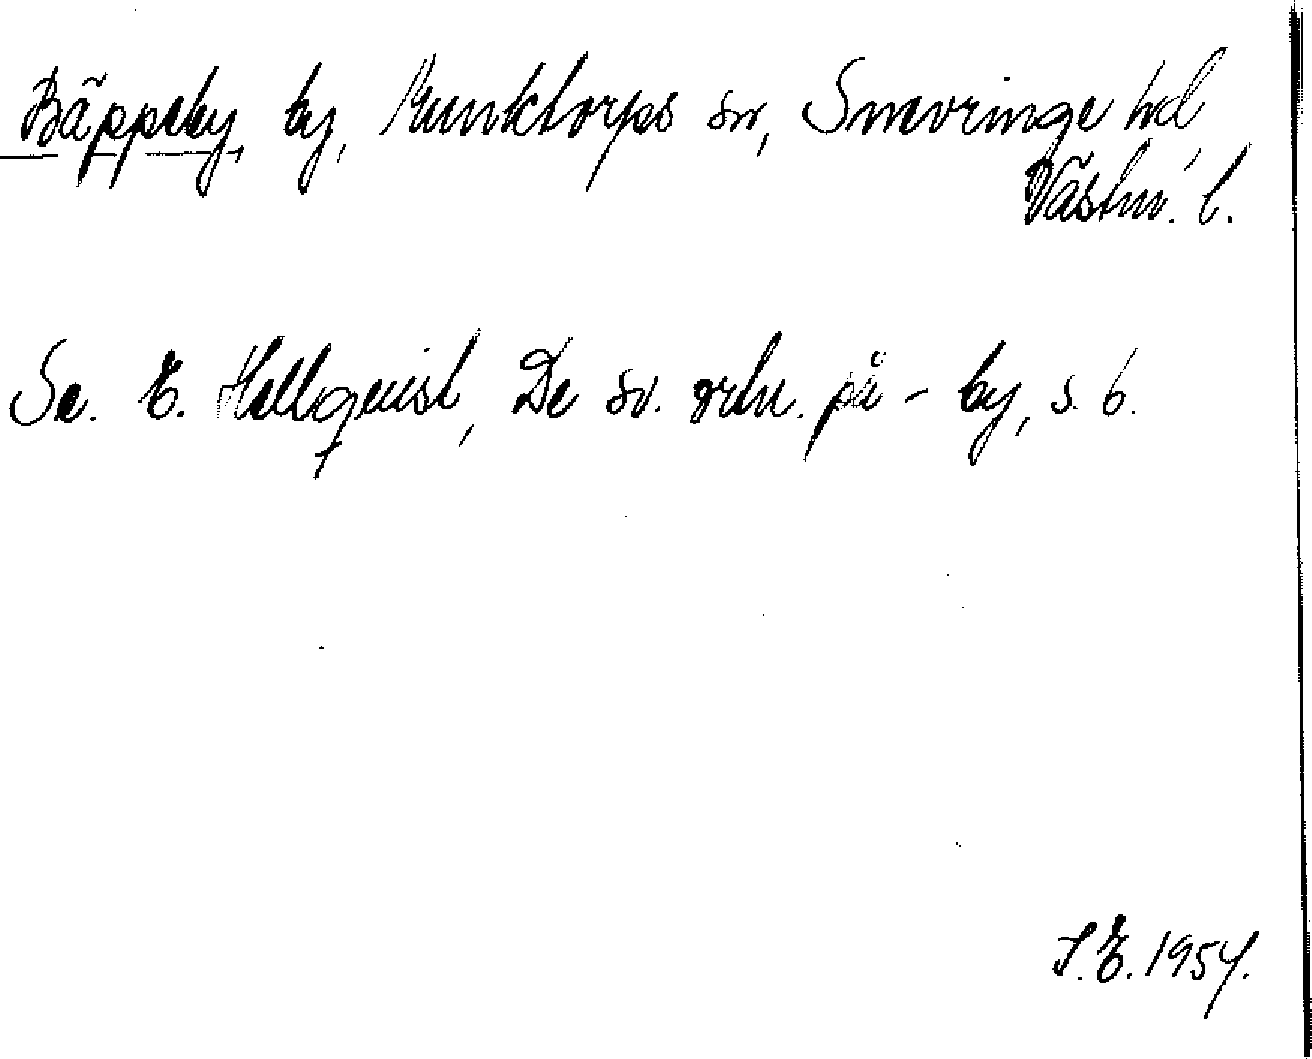 Bäppeby, by, Munktorps sn, Snevringe hd,
Västm. l.
Se. E. Hellquist, De sv. ortn. på - by, s. 6.
S.E. 1954.